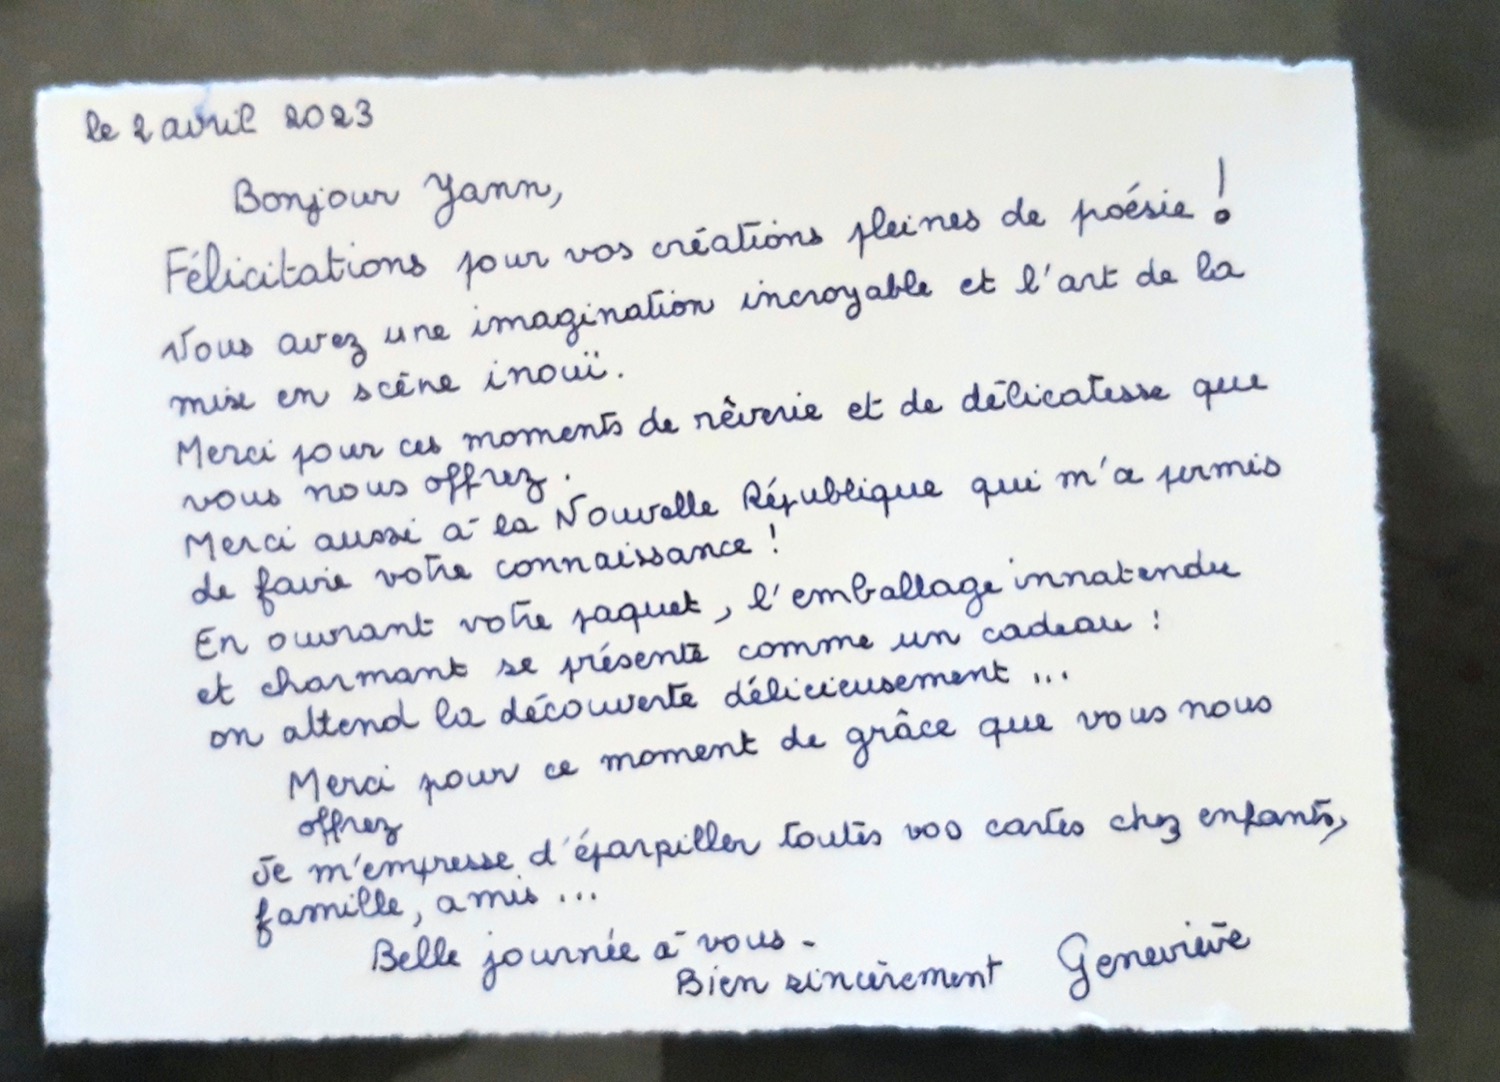 le 2 avril 2023
Bonjour Yann,
Félicitations pour vos créations pleines de poésie !
Vous avez une imagination incroyable et l'art de la
mise en scène inouï.
Merci pour ces moments de rêverie et de délicatesse que
vous nous offrez.
Merci aussi à la Nouvelle République qui m'a permis
de faire votre connaissance !
En ouvrant votre paquet, l'emballage innatendu
et charmant se présente comme un cadeau :
on attend la découverte délicieusement ...
Merci pour ce moment de grâce que vous nous
offrez
Je m'empresse d'éparpiller toutes vos cartes chez enfants,
famille, amis ...
Belle journée à vous.
Bien sincèrement Geneviève